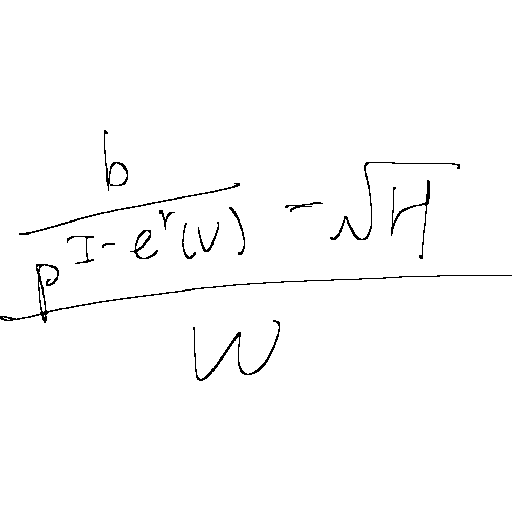 \frac{\frac{b}{p^{I - e^{r}(V)}} - \sqrt{H}}{W}